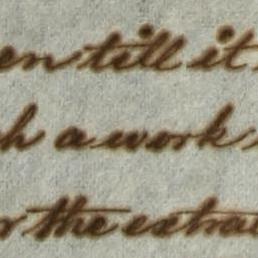 en till it
h a work
r the extra